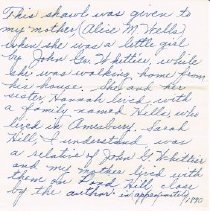 This shawl was given to
my mother (Alice M. Wells)
when she was a little girl
by John Gr. Whittier, while
she was walking home from
his house. She and her
sister Hannah lived with
a family named Hills who
lived in Amesbury. Sarah
Hill, I understand was
a relative of John G. Whittier
and my mother lived with
them on Hill close
by the author in approximately
1890